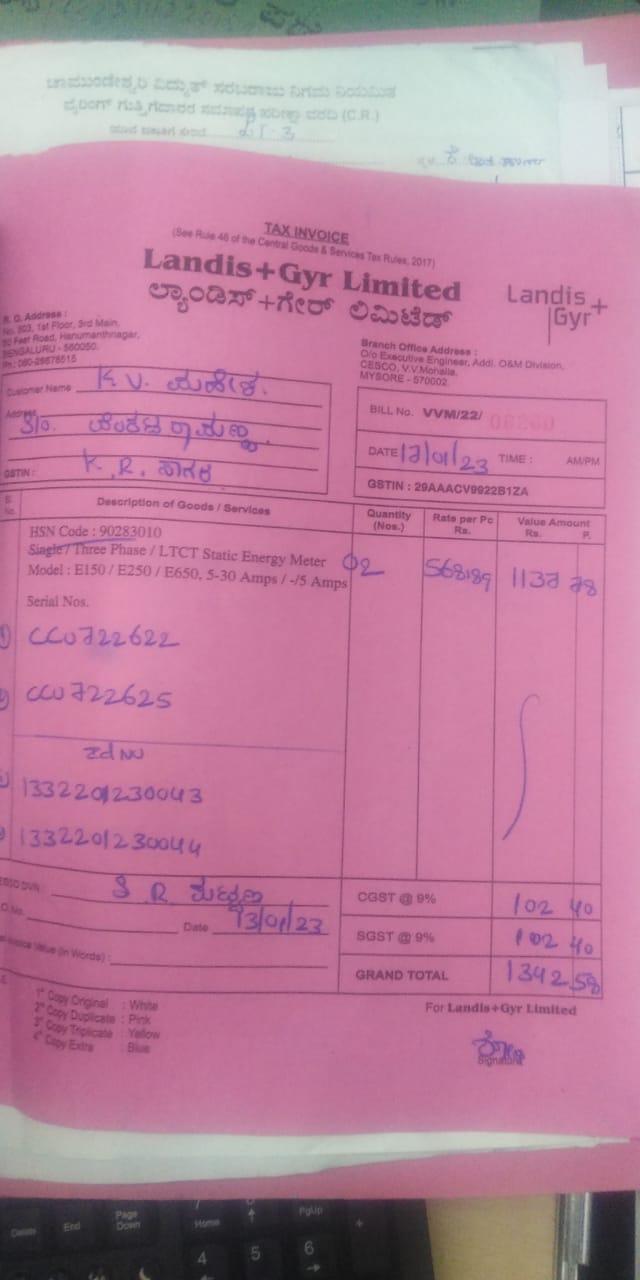 ಚಾಮುಂಡೇಶ್ವರಿ ವಿದ್ಯುತ್ ಸರಬರಾಜು ನಿಗಮ ನಿಯಮಿತ
ವೈರಿಂಗ್ ಗುತ್ತಿಗೆದಾರರ ಸಮಾಪ್ತಿ ಪರೀಕ್ಷಾ ವರದಿ (C.R.)
TAX INVOICE
(See Rule 46 of the Central Goods & Services Tax Rules, 2017)
Landis+Gyr Limited
ಲ್ಯಾಂಡಿಸ್+ಗೇರ್ ಲಿಮಿಟೆಡ್
Landis+
Gyr
R. O. Address :
No. 803, 1st Floor, 3rd Main,
Feet Road, Hanumanthnagar,
BENGALURU - 560050.
Ph : 080-26676515
Branch Office Address :
O/o Executive Engineer, Addl. O&M Division,
CESCO, V.V.Mohalla,
MYSORE - 570002.
Customer Name K V. ಮಹೇಶ.
Address S/o. ವೆಂಕಟರಾಮಣ್ಣ
GSTIN : K. R. ನಗರ
BILL No. VVM/22/
DATE 13/01/23 TIME : AM/PM
GSTIN : 29AAACV9922B1ZA
Sl. No. Description of Goods / Services Quantity (Nos.) Rate per Pc Rs. Value Amount Rs. P.
HSN Code : 90283010
Single / Three Phase / LTCT Static Energy Meter
Model : E150 / E250 / E650, 5-30 Amps / -/5 Amps 02 568.89 1137 78
Serial Nos.
1) CCU722622
2) CCU722625
1332201230043
1332201230044
CESCO DVN : K R
O.No. Date 13/01/23
Invoice Value (In Words) :
CGST @ 9% 102 40
SGST @ 9% 102 40
GRAND TOTAL 1342.58
1st Copy Original : White
2nd Copy Duplicate : Pink
3rd Copy Triplicate : Yellow
4th Copy Extra : Blue
For Landis+Gyr Limited
Signature
Delete End Page Down
7 Home
PgUp
+
4 5 6